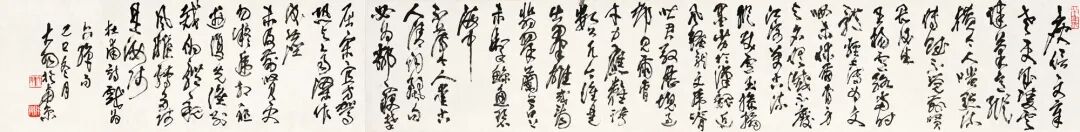 庾信文章
老更成凌云
健笔意纵
横今人嗤点流
传赋不觉前贤
畏后生
王杨卢骆当时
体轻薄为文
哂未休尔曹身
与名俱灭不废
江河万古流
纵使卢王操翰
墨劣于汉魏近
风骚龙文虎脊
皆君驭历块过
都见尔曹
才力应难跨
数公凡今谁是
出群雄或看
翡翠兰苕上
未掣鲸鱼碧
海中
不薄今人爱古
人清词丽句
必为邻窃攀
屈宋宜方驾
恐与齐梁作
后尘
未及前贤更
勿疑递相祖
述复先谁别
裁伪体亲
风雅转益多师
是汝师
杜甫诗戏为
六绝句
冬月
於南京